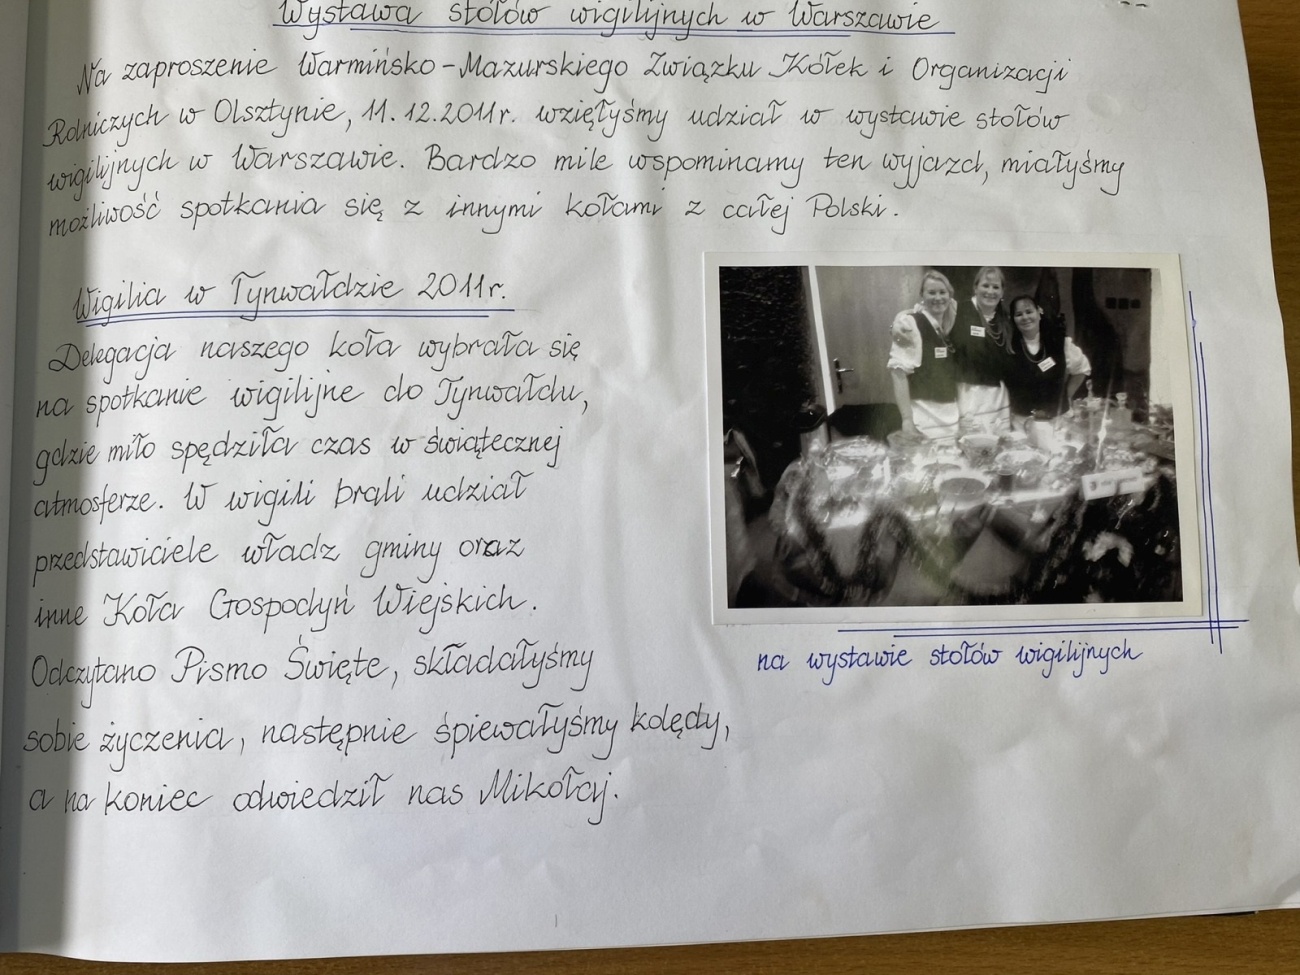 Wystawa stołów wigilijnych w Warszawie
Na zaproszenie Warmińsko-Mazurskiego Związku Kółek i Organizacji
Rolniczych w Olsztynie, 11.12.2011r. wzięłyśmy udział w wystawie stołów
wigilijnych w Warszawie. Bardzo mile wspominamy ten wyjazd, miałyśmy
możliwość spotkania się z innymi kołami z całej Polski.
Wigilia w Tynwałdzie 2011r.
Delegacja naszego koła wybrała się
na spotkanie wigilijne do Tynwałdu,
gdzie miło spędziła czas w świątecznej
atmosferze. W wigili brali udział
przedstawiciele władz gminy oraz
inne Koła Gospodyń Wiejskich.
Odczytano Pismo Święte, składałyśmy
sobie życzenia, następnie śpiewałyśmy kolędy,
a na koniec odwiedził nas Mikołaj.
na wystawie stołów wigilijnych